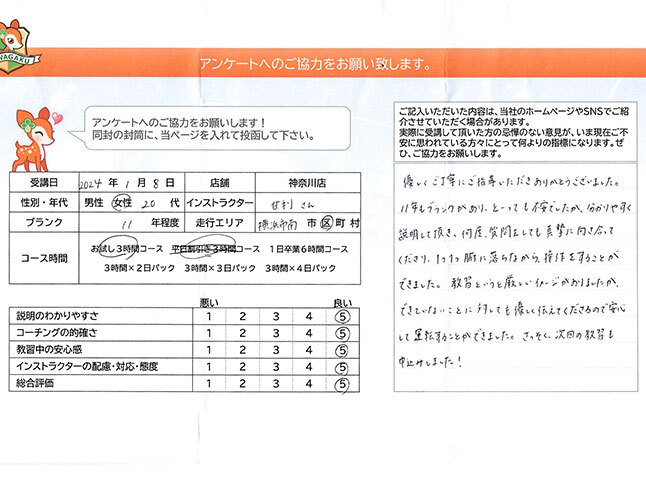 WAGAKU
アンケートへのご協力をお願い致します。
アンケートへのご協力をお願いします！
同封の封筒に、当ページを入れて投函して下さい。
受講日 2024 年 1 月 8 日 店舗 神奈川店
性別・年代 男性 女性 20 代 インストラクター 甘利 さん
ブランク 11 年程度 走行エリア 横浜市南 市 区 町 村
コース時間 お試し3時間コース 平日割引き3時間コース 1日卒業6時間コース
3時間×2日パック 3時間×3日パック 3時間×4日パック
悪い 良い
説明のわかりやすさ 1 2 3 4 5
コーチングの的確さ 1 2 3 4 5
教習中の安心感 1 2 3 4 5
インストラクターの配慮・対応・態度 1 2 3 4 5
総合評価 1 2 3 4 5
ご記入いただいた内容は、当社のホームページやSNSでご紹
介させていただく場合があります。
実際に受講して頂いた方の忌憚のない意見が、いま現在ご不
安に思われている方々にとって何よりの指標になります。ぜ
ひ、ご協力をお願いします。
優しくご丁寧にご指導いただきありがとうございました。
11年もブランクがあり、とっても不安でしたが、分かりやすく
説明して頂き、何度、質問をしても真摯に向き合って
くださり、1つ1つ腑に落ちながら、操作をすることが
できました。教習というと厳しいイメージがありましたが、
できていないことに対しても優しく伝えてくださるので安心
して運転することができました。さっそく、次回の教習も
申込みしました！